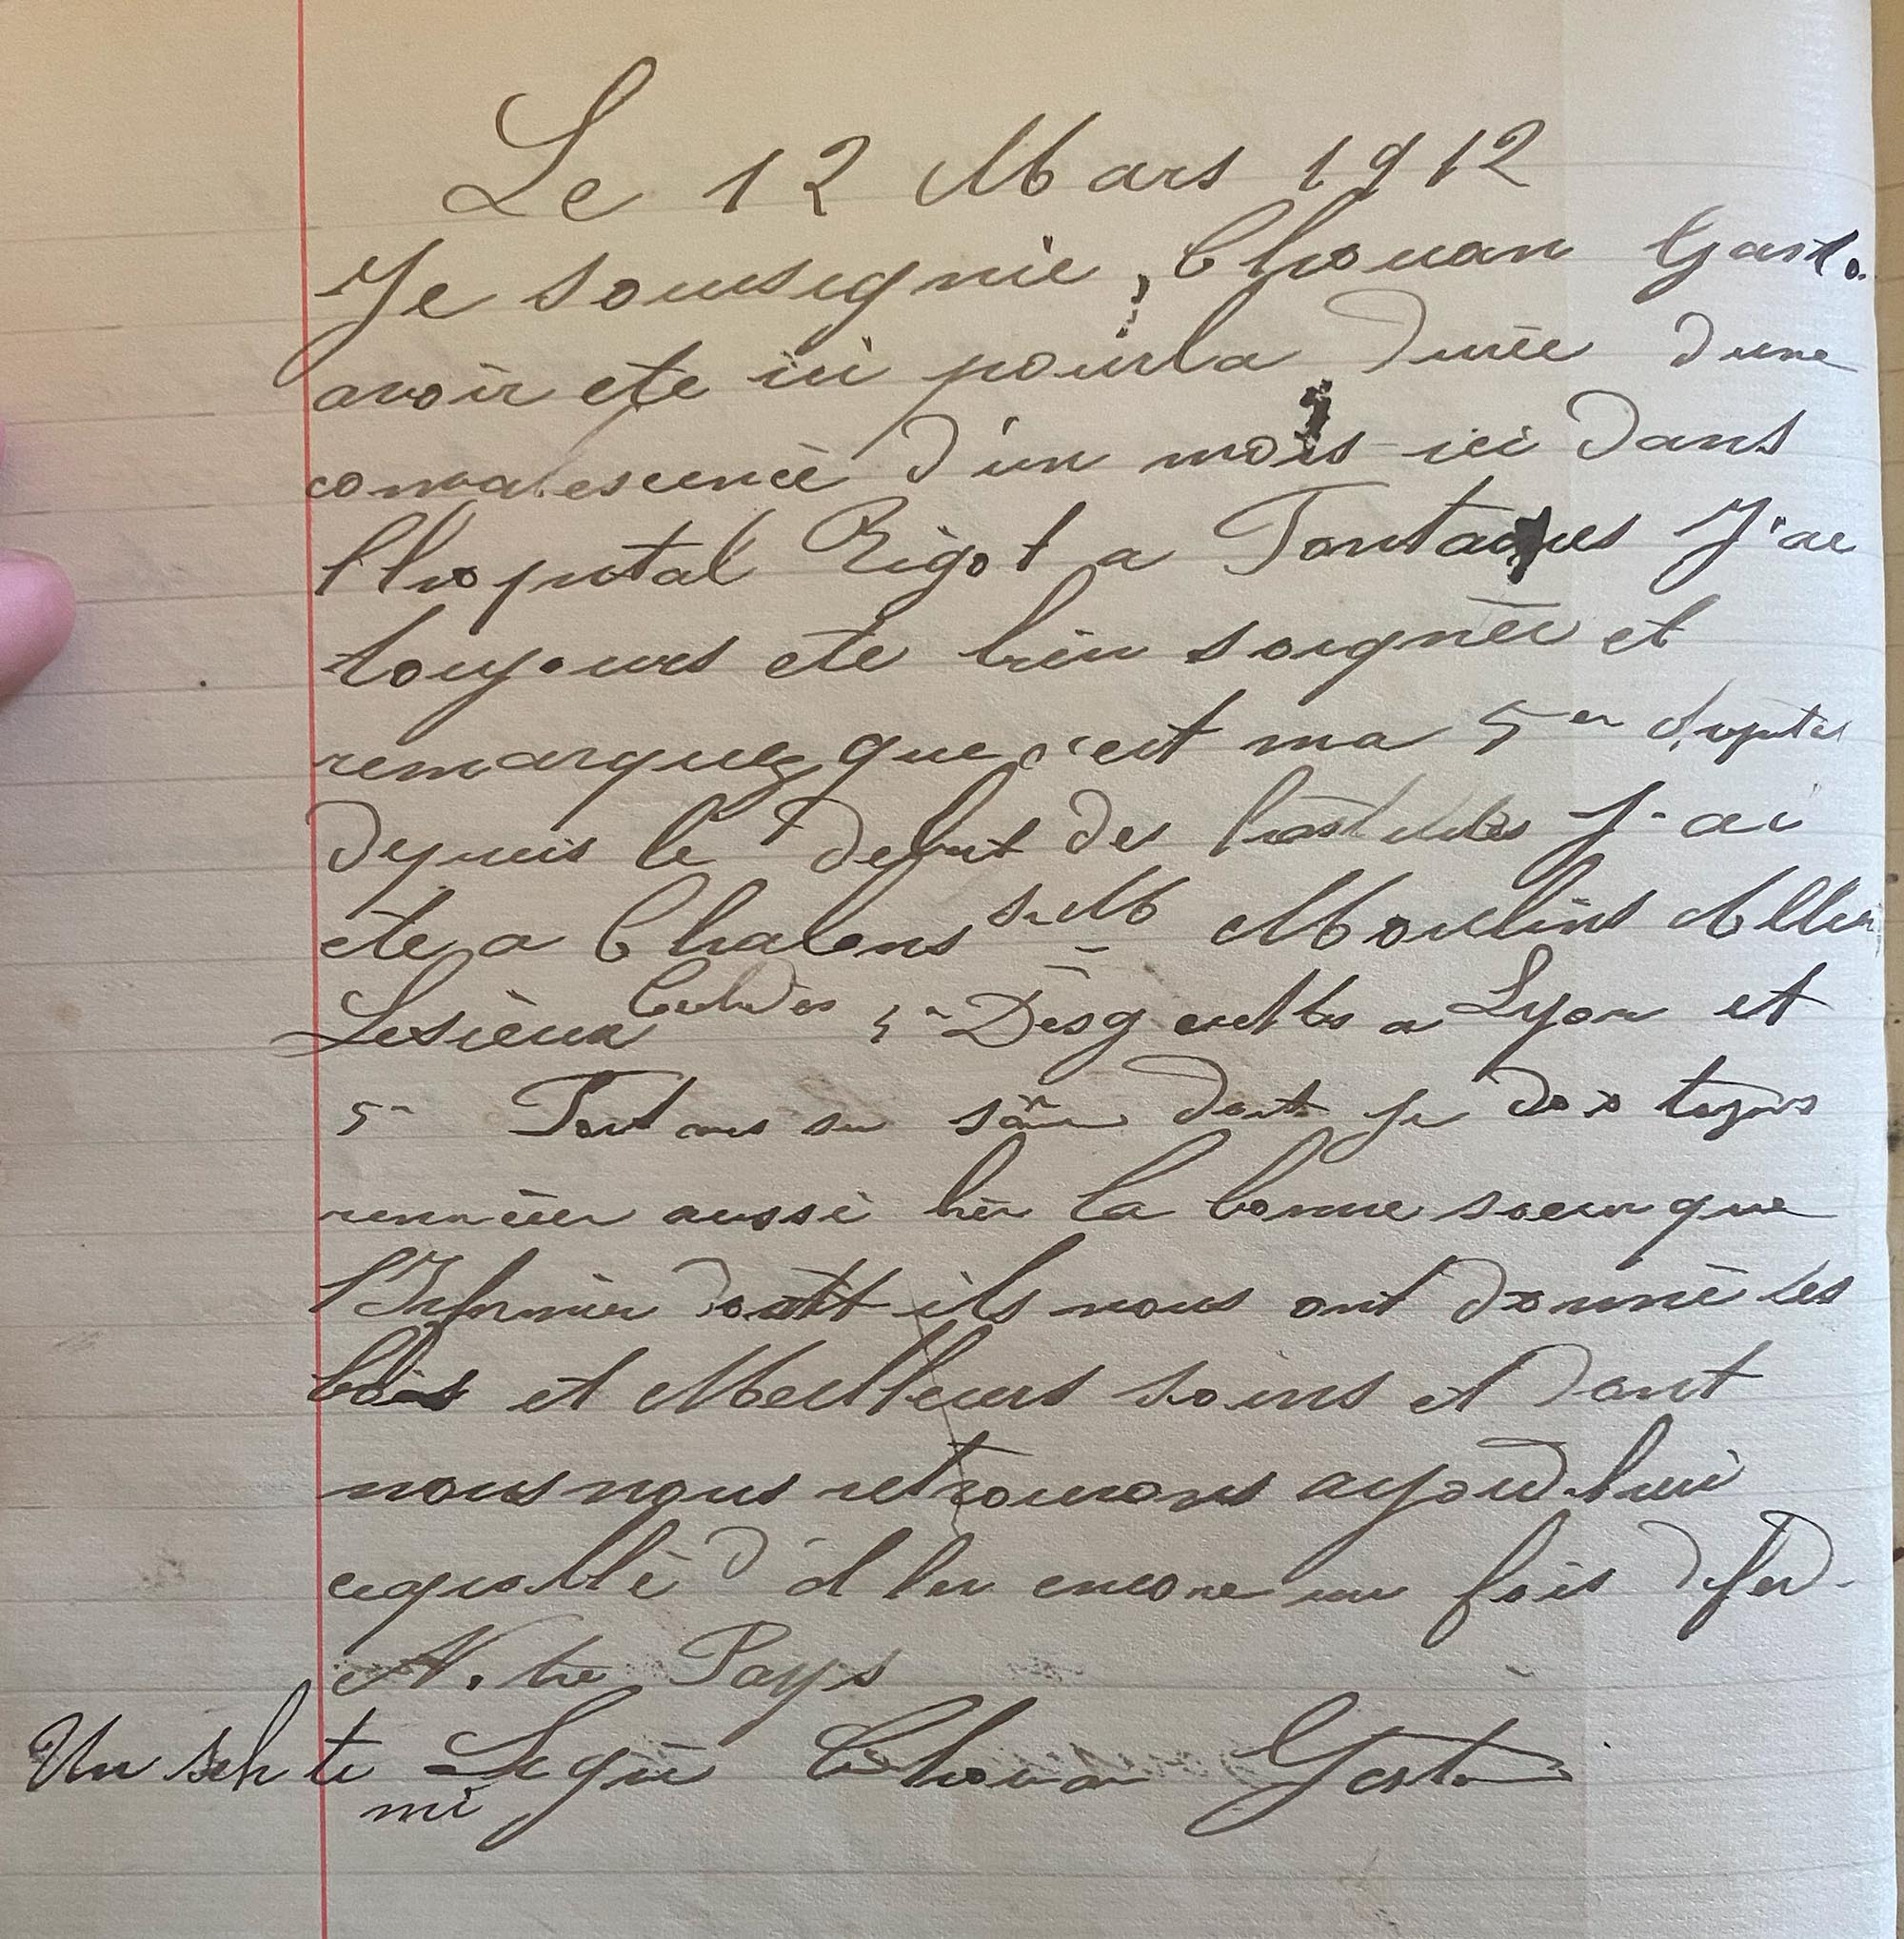 Le 12 Mars 1912
Je sousignie, Chouan Gasto
avoir ete ici pour la durée dune
convalescence d'un mois ici dans
l'hopital Rigot a J'ai
toujours ete bien soignée et
remarquez que c'est ma 5er hopital
depuis le debut des hostilités J-ai
ete a Chalons s-M Moulins
Lesieur Desgenettes a Lyon et
5e dont je dois toujours
aussi bien la bonne soeur que
l'Infirmier dont ils nous ont donné les
bons et Meilleurs soins et dont
nous nous retrouvons aujourd'hui
d'aller encore un fois
Notre Pays
Un Signé Chouan Gaston